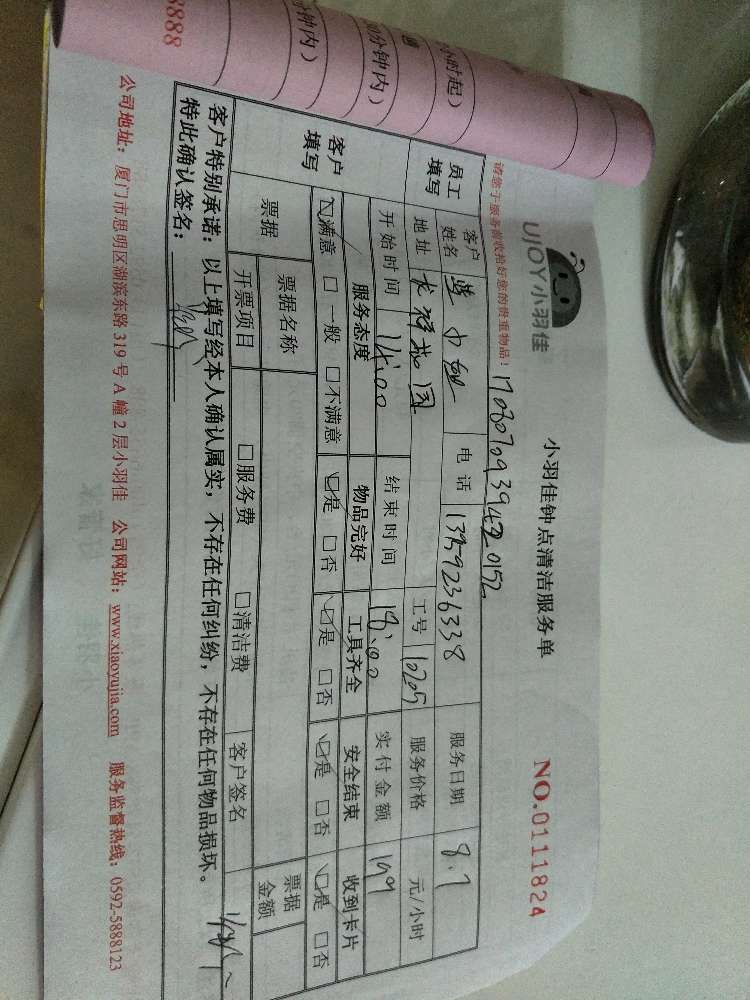 8888
小时起）
0分钟内）
分钟内）
UJOY小羽佳
小羽佳钟点清洁服务单
NO.0111824
请您于服务前收拾好您的贵重物品！
员工填写 客户姓名 小姐 电话 13959236338 服务日期 8.7
地址 花园 工号 10205 服务价格 元/小时
开始时间 14:00 结束时间 18:00 实付金额 199
客户填写 服务态度 物品完好 工具齐全 安全结束 收到卡片
☑满意 □一般 □不满意 ☑是 □否 ☑是 □否 ☑是 □否 ☑是 □否
票据 票据名称 票据金额
开票项目 □服务费 □清洁费 客户签名
客户特别承诺：以上填写经本人确认属实，不存在任何纠纷，不存在任何物品损坏。
特此确认签名：
公司地址：厦门市思明区湖滨东路 319 号 A 幢 2 层小羽佳 公司网站：www.xiaoyujia.com 服务监督热线：0592-5888123